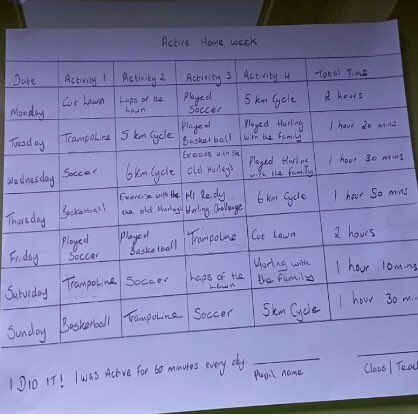 Active Home week
Date Activity 1 Activity 2 Activity 3 Activity 4 Total Time
Monday Cut Lawn Laps of the Lawn Played Soccer 5 km Cycle 2 hours
Tuesday Trampoline 5 km Cycle Played Basketball Played Hurling with the family 1 hour 20 mins
Wednesday Soccer 6 km Cycle Exercise with the Old Hurleys Played Hurling with the family 1 hour 30 mins
Thursday Basketball Exercise with the the old Hurleys Mr Reidy Hurling Challenge 6 km Cycle 1 hour 50 mins
Friday Played Soccer Played Basketball Trampoline Cut Lawn 2 hours
Saturday Trampoline Soccer Laps of the Lawn Hurling with the family 1 hour 10 mins
Sunday Basketball Trampoline Soccer 5km Cycle 1 hour 30 min
I DID IT! I was Active for 60 minutes every day.
Pupil name
Class | Teac